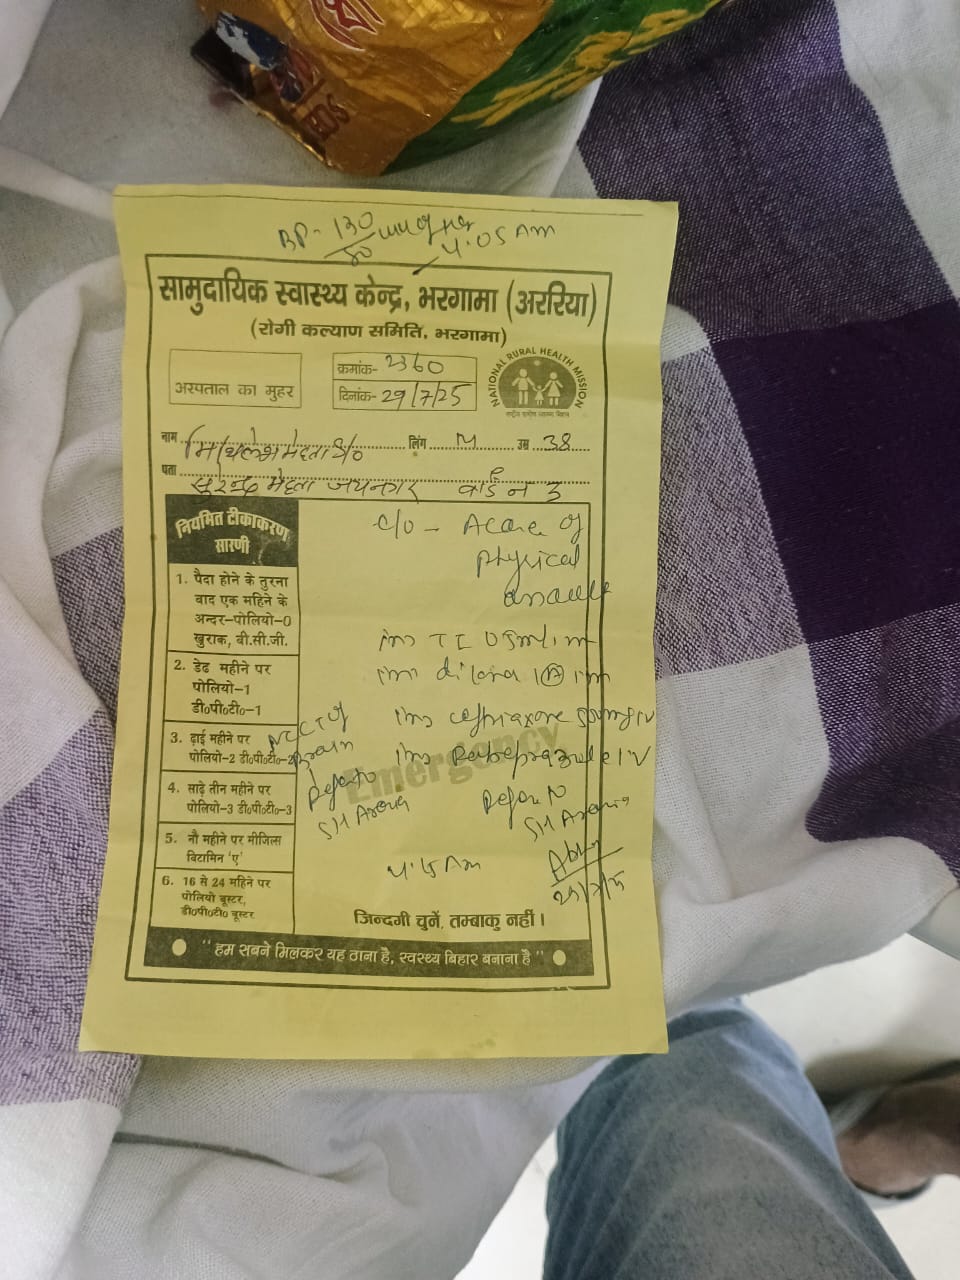 BP- 130/80 mm of Hg
4:05 AM
सामुदायिक स्वास्थ्य केन्द्र, भरगामा (अररिया)
(रोगी कल्याण समिति, भरगामा)
अस्पताल का मुहर
क्रमांक- 2360
दिनांक- 29/7/25
NATIONAL RURAL HEALTH MISSION
राष्ट्रीय ग्रामीण स्वास्थ्य मिशन
नाम मिथिलेश मेहता S/o लिंग M उम्र 38
पता सुरेन्द्र मेहता जयनगर वार्ड नं 3
नियमित टीकाकरण
सारणी
1. पैदा होने के तुरन्त
बाद एक महिने के
अन्दर-पोलियो-0
खुराक, बी.सी.जी.
2. डेढ महीने पर
पोलियो-1
डी०पी०टी०-1
3. ढ़ाई महीने पर
पोलियो-2 डी०पी०टी०-2
4. साढ़े तीन महीने पर
पोलियो-3 डी०पी०टी०-3
5. नौ महीने पर मीजिल्स
विटामिन 'ए'
6. 16 से 24 महिने पर
पोलियो बूस्टर,
डी०पी०टी० बूस्टर
c/o - A case of
Physical
assault
Inj TT 0.5ml im
Inj diclona 1 im
Inj ceftriaxone IV
Inj Rabeprazole IV
Emergency
NCCT of
Brain
Refer to
SH Araria
Refer to
SH Araria
4:15 AM
जिन्दगी चुनें, तम्बाकु नहीं।
"हम सबने मिलकर यह ठाना है, स्वस्थ्य बिहार बनाना है"